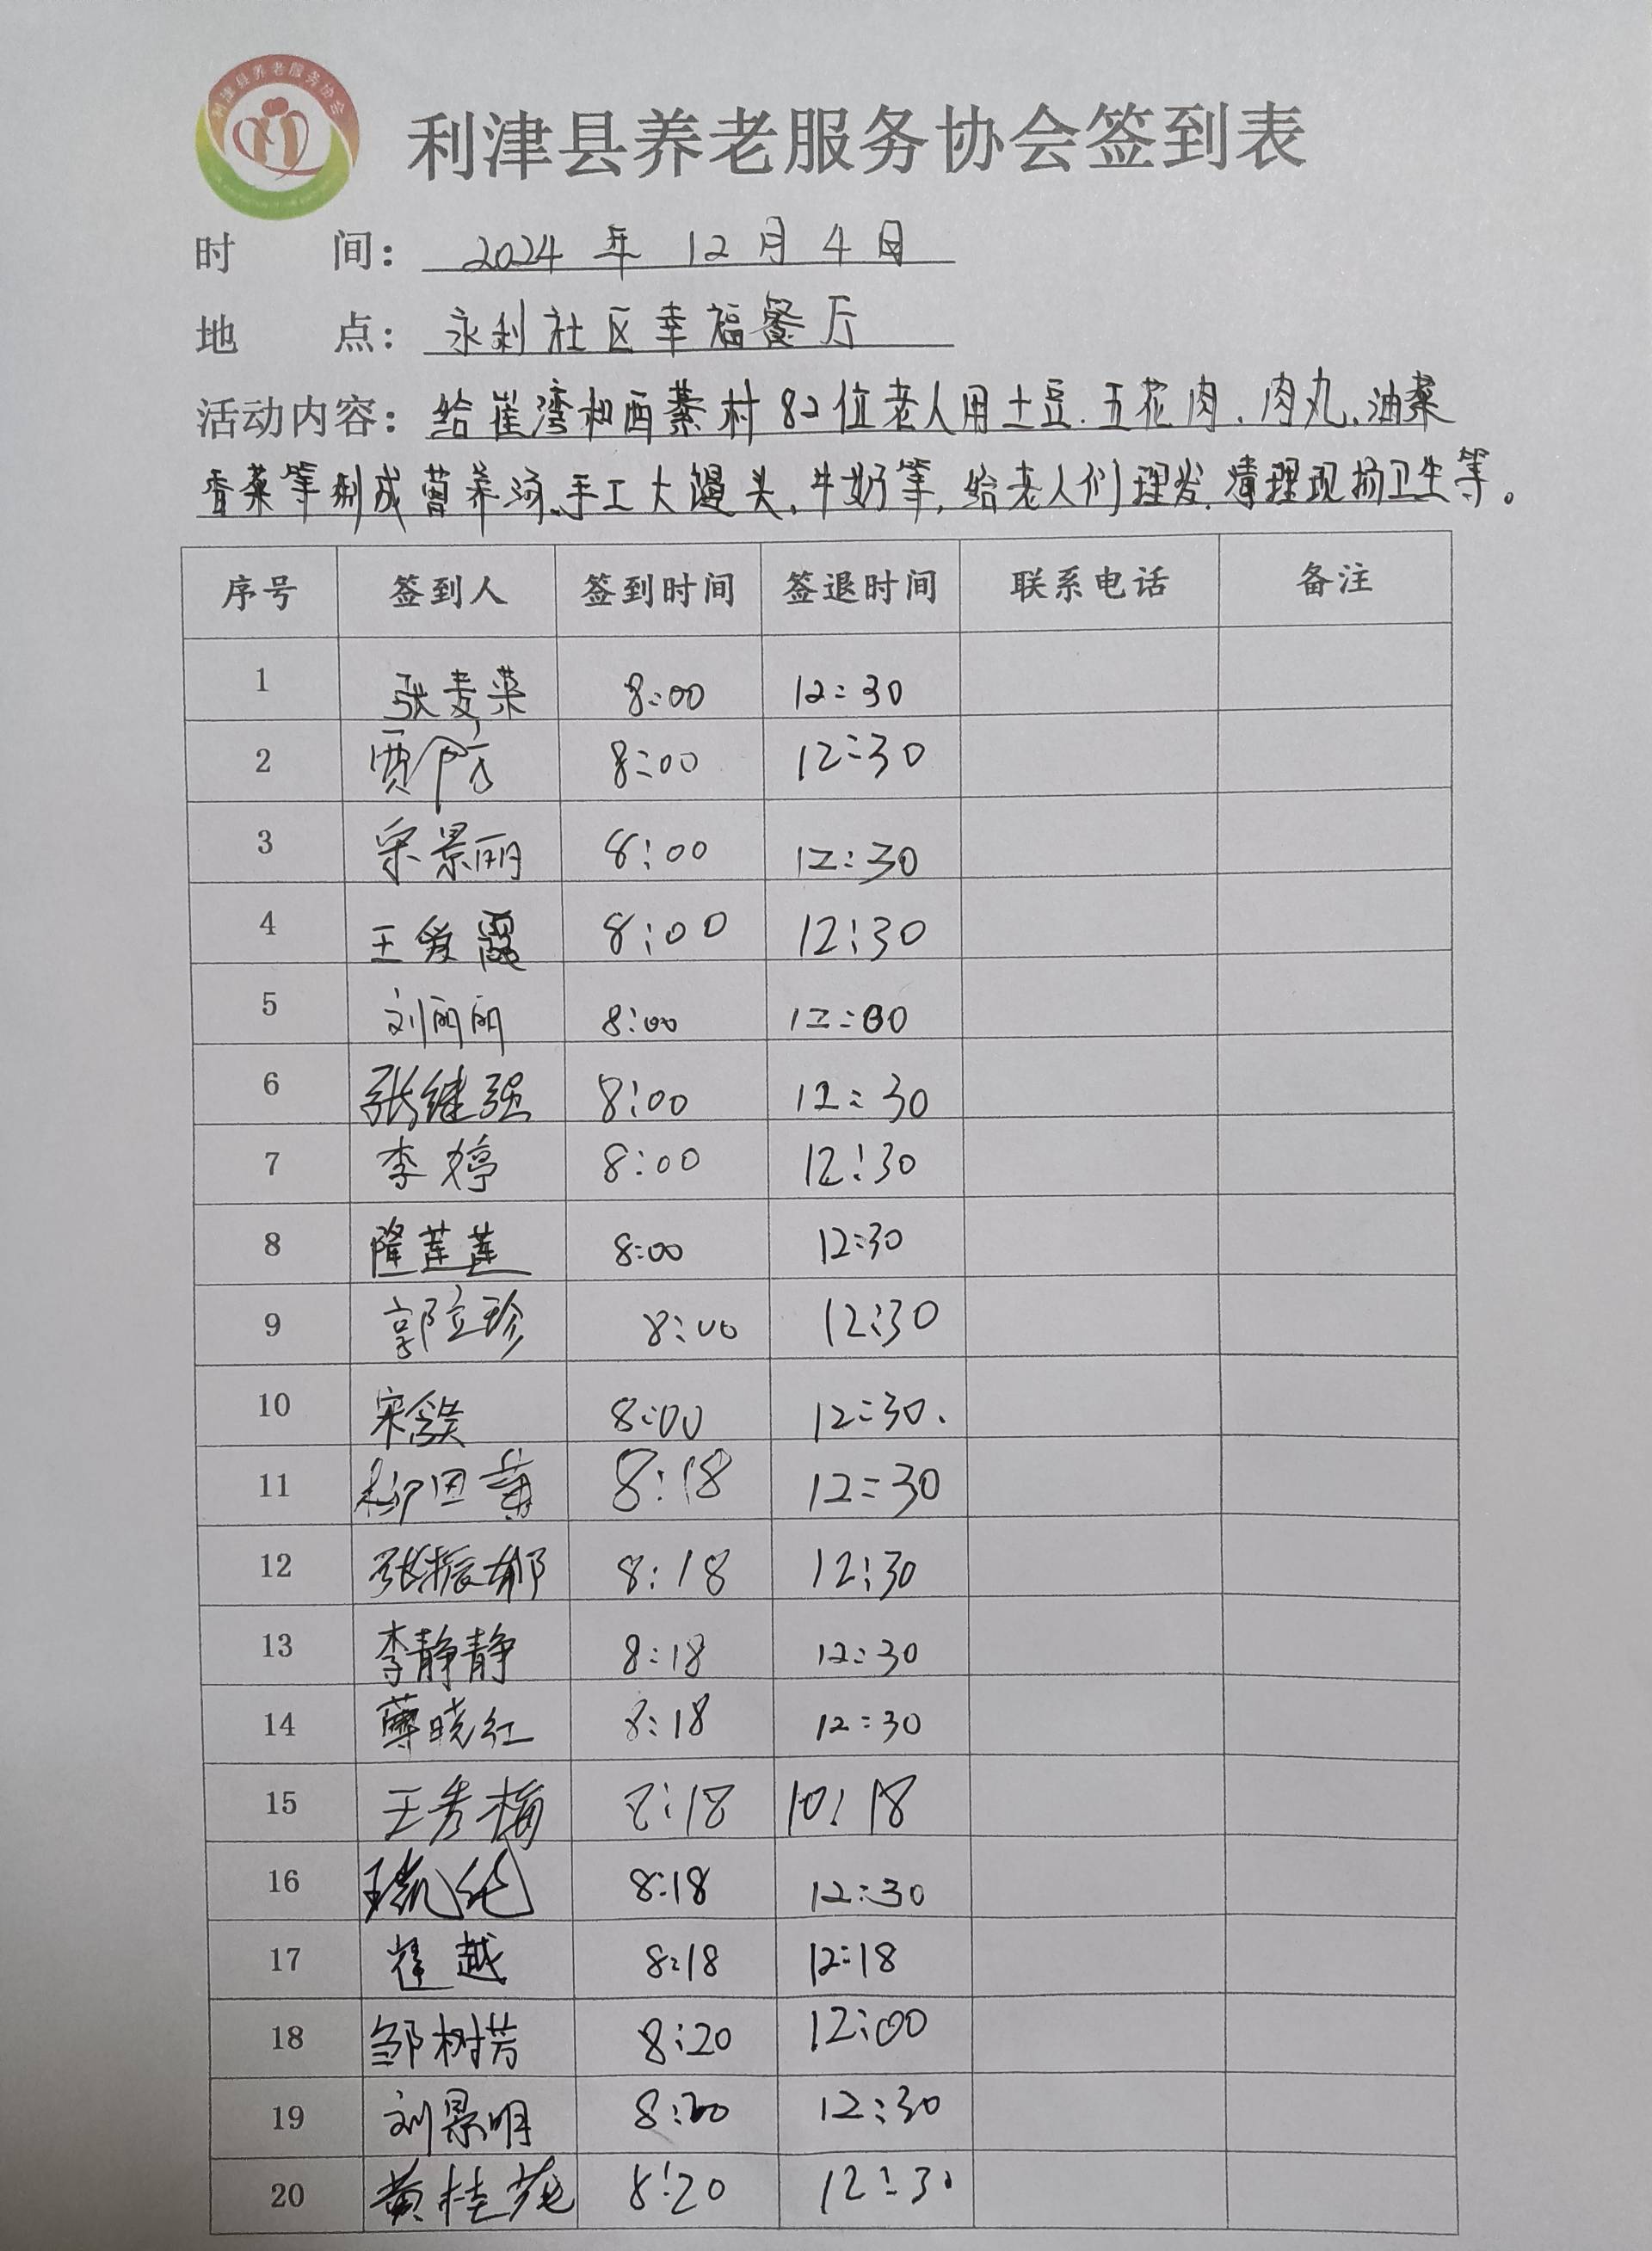 利津县养老服务协会
利津县养老服务协会签到表
时 间: 2024 年 12 月 4 日
地 点: 永利社区幸福餐厅
活动内容: 给崔湾和西綦村82位老人用土豆.五花肉.肉丸.油菜
香菜等制成营养汤.手工大馒头.牛奶等,给老人们理发.清理现场卫生等。
序号 签到人 签到时间 签退时间 联系电话 备注
1 张麦菜 8:00 12:30
2 贾 8:00 12:30
3 宋景丽 8:00 12:30
4 王爱霞 8:00 12:30
5 刘丽丽 8:00 12:30
6 张继强 8:00 12:30
7 李婷 8:00 12:30
8 隆莲莲 8:00 12:30
9 郭立珍 8:00 12:30
10 宋 8:00 12:30.
11 柳田 8:18 12:30
12 张振郁 8:18 12:30
13 李静静 8:18 12:30
14 薄晓红 8:18 12:30
15 王秀梅 8:18 10:18
16 8:18 12:30
17 崔越 8:18 12:18
18 邹树芳 8:20 12:00
19 刘景明 8:20 12:30
20 黄桂花 8:20 12:30